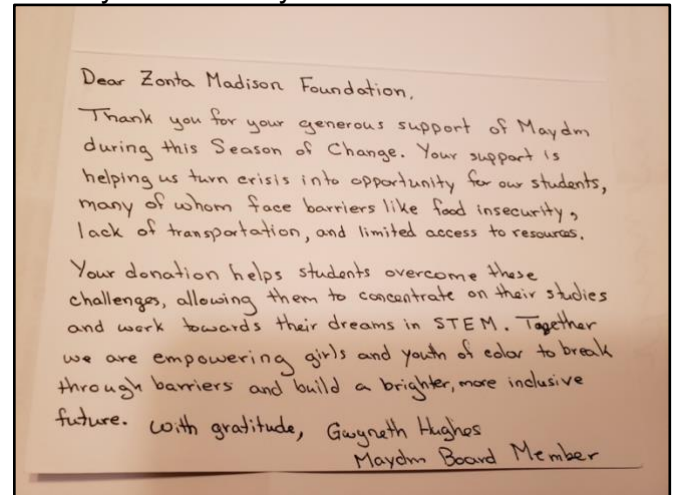 Dear Zonta Madison Foundation,
Thank you for your generous support of Maydm
during this Season of Change. Your support is
helping us turn crisis into opportunity for our students,
many of whom face barriers like food insecurity,
lack of transportation, and limited access to resources.
Your donation helps students overcome these
challenges, allowing them to concentrate on their studies
and work towards their dreams in STEM. Together
we are empowering girls and youth of color to break
through barriers and build a brighter, more inclusive
future. With gratitude, Gwyneth Hughes
Maydm Board Member